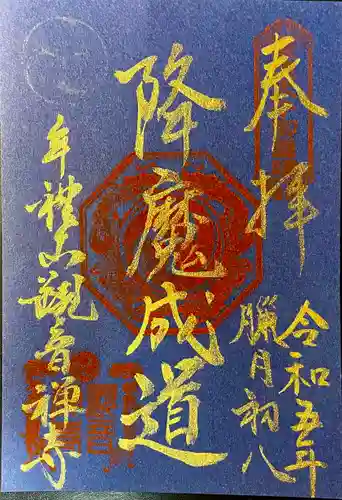 奉拝
令和五年
臘月初八
降魔成道
牟禮山観音禅寺